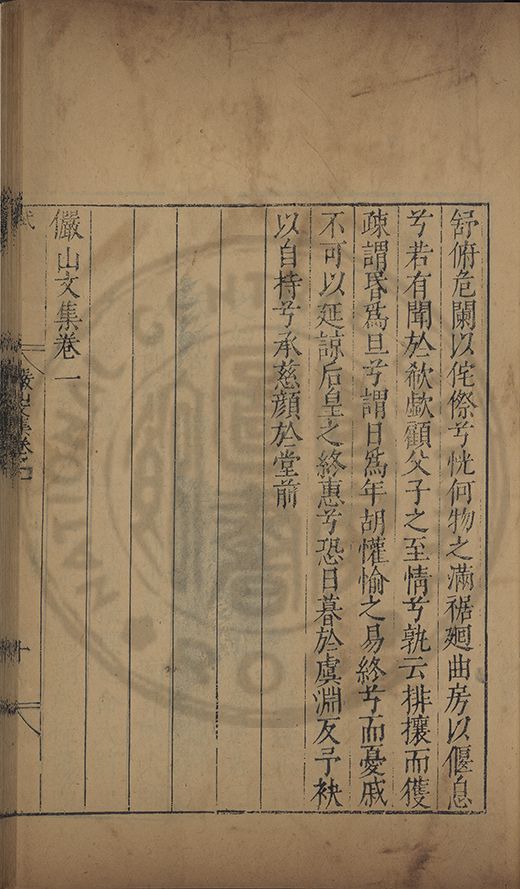 舒俯危闌以侘傺兮恍何物之滿裾廻曲房以偃息
兮若有聞於欷歔顧父子之至情兮孰云排攘而獲
疎謂昬為旦兮謂日為年胡懽愉之易終兮而憂戚
不可以延諒后皇之終惠兮恐日暮於虞淵反予袂
以自持兮承慈顔於堂前
儼山文集卷一